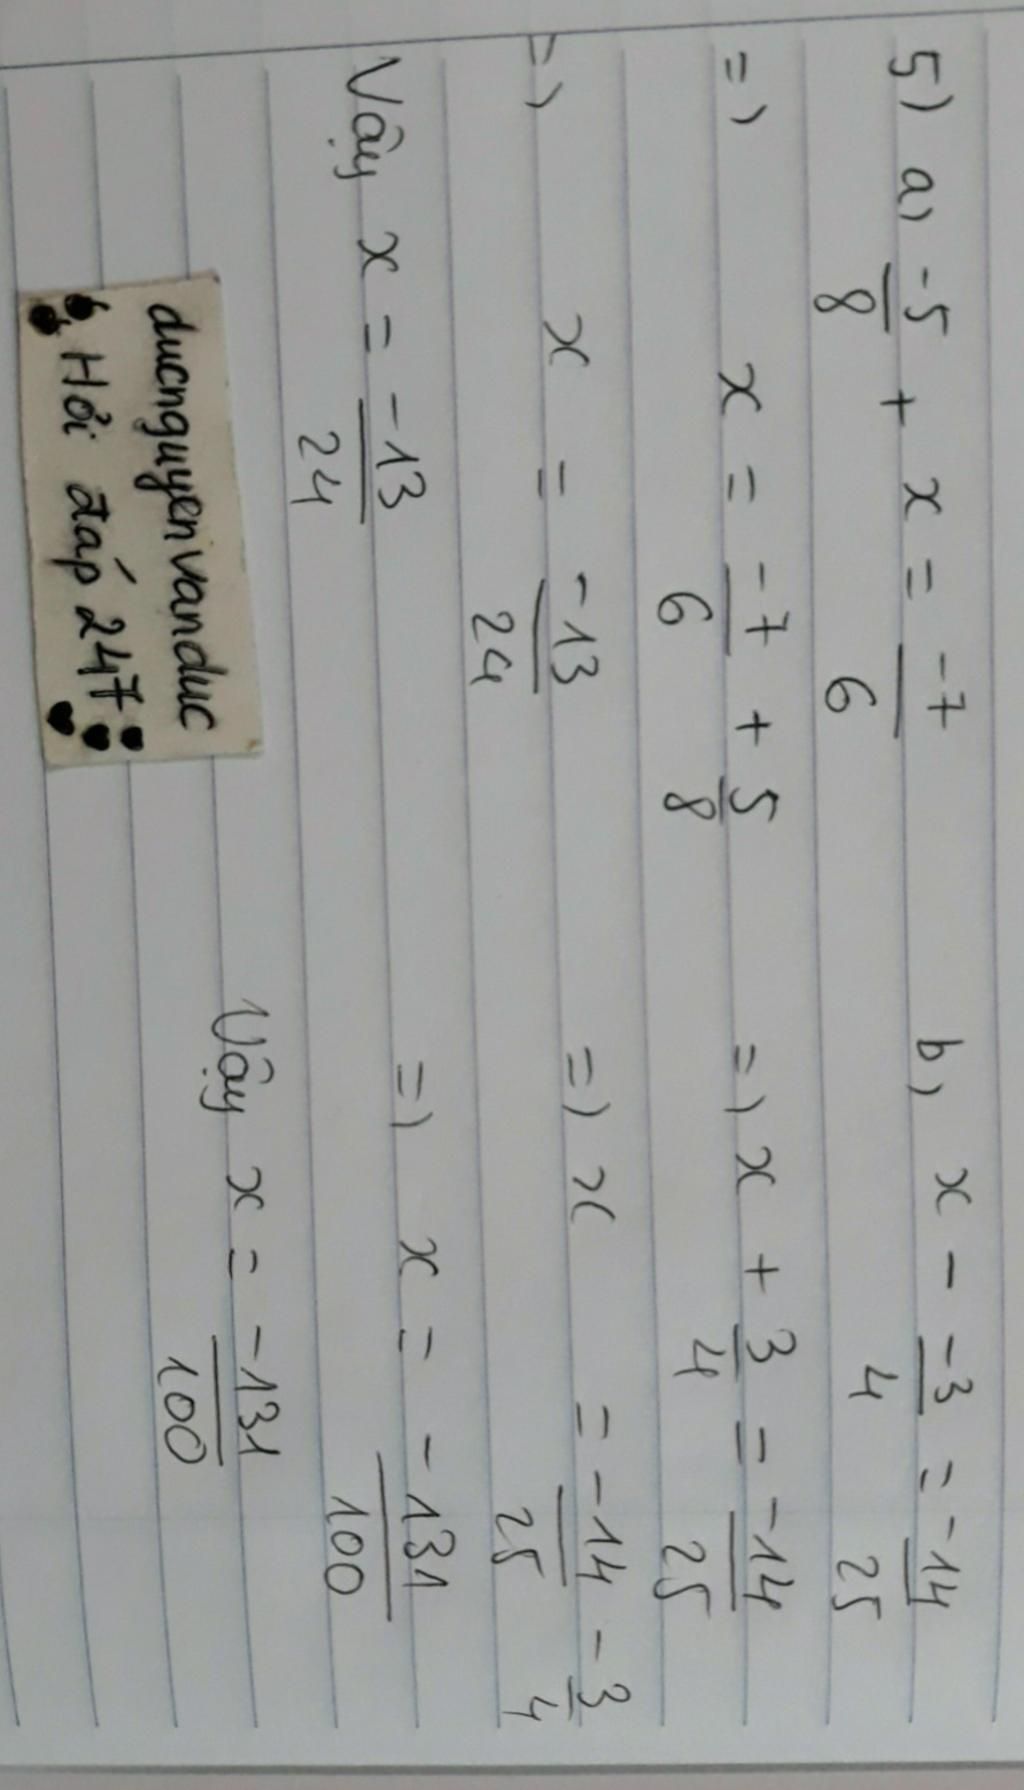 5) a) -5/8 + x = -7/6
=) x = -7/6 + 5/8
=) x = -13/24
Vậy x = -13/24
b) x - -3/4 = -14/25
=) x + 3/4 = -14/25
=) x = -14/25 - 3/4
=) x = -131/100
Vậy x = -131/100
ducnguyenvanduc
Hỏi đáp 247